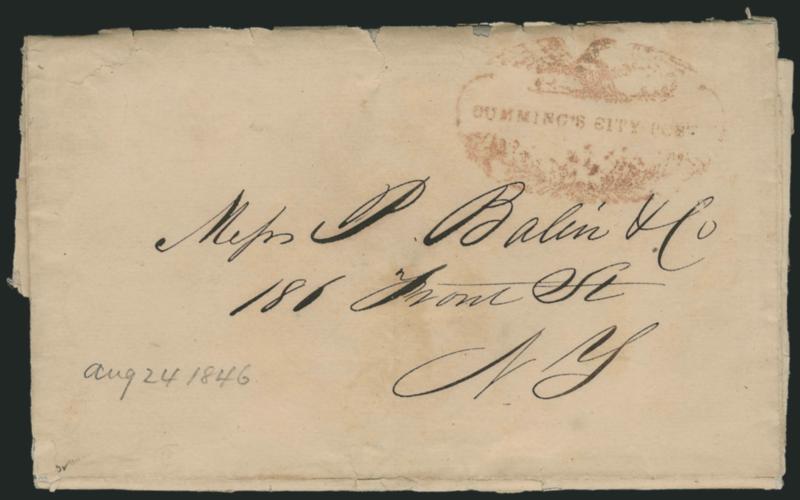 CUMMING'S CITY POST
Messrs P. Balin & Co
186 Front St
N Y
Aug 24 1846